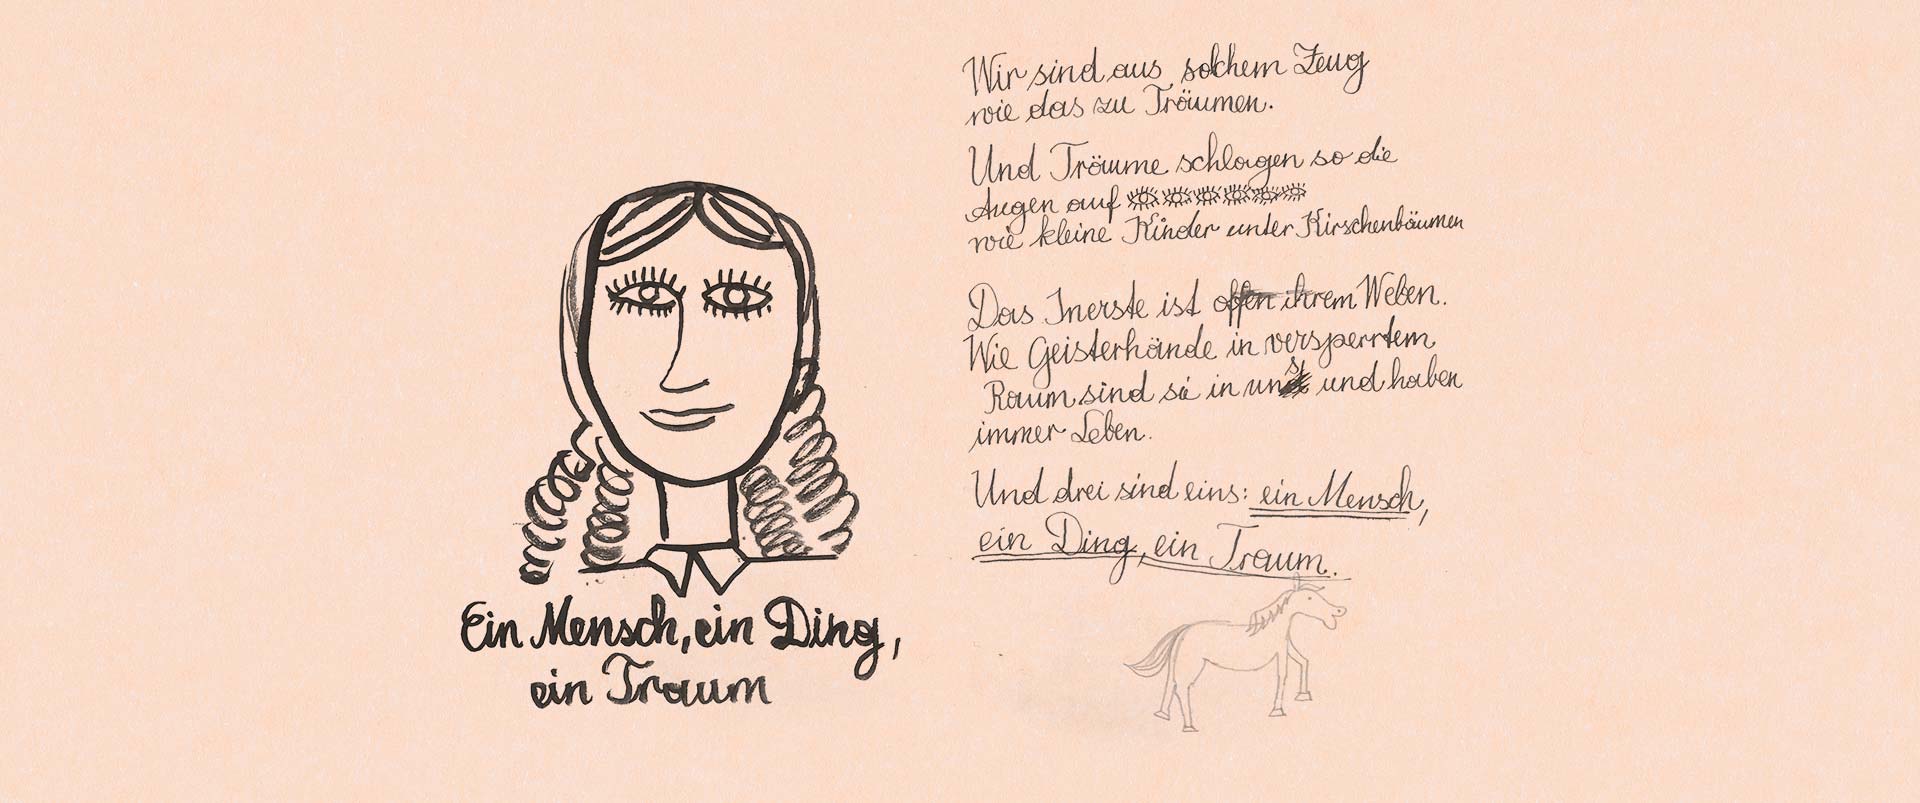 Ein Mensch, ein Ding,
ein Traum
Wir sind aus solchem Zeug
wie das zu Träumen.
Und Träume schlagen so die
Augen auf
wie kleine Kinder unter Kirschenbäumen
Das Inerste ist offen ihrem Weben.
Wie Geisterhände in versperrtem
Raum sind sie in uns und haben
immer Leben.
Und drei sind eins: ein Mensch,
ein Ding, ein Traum.